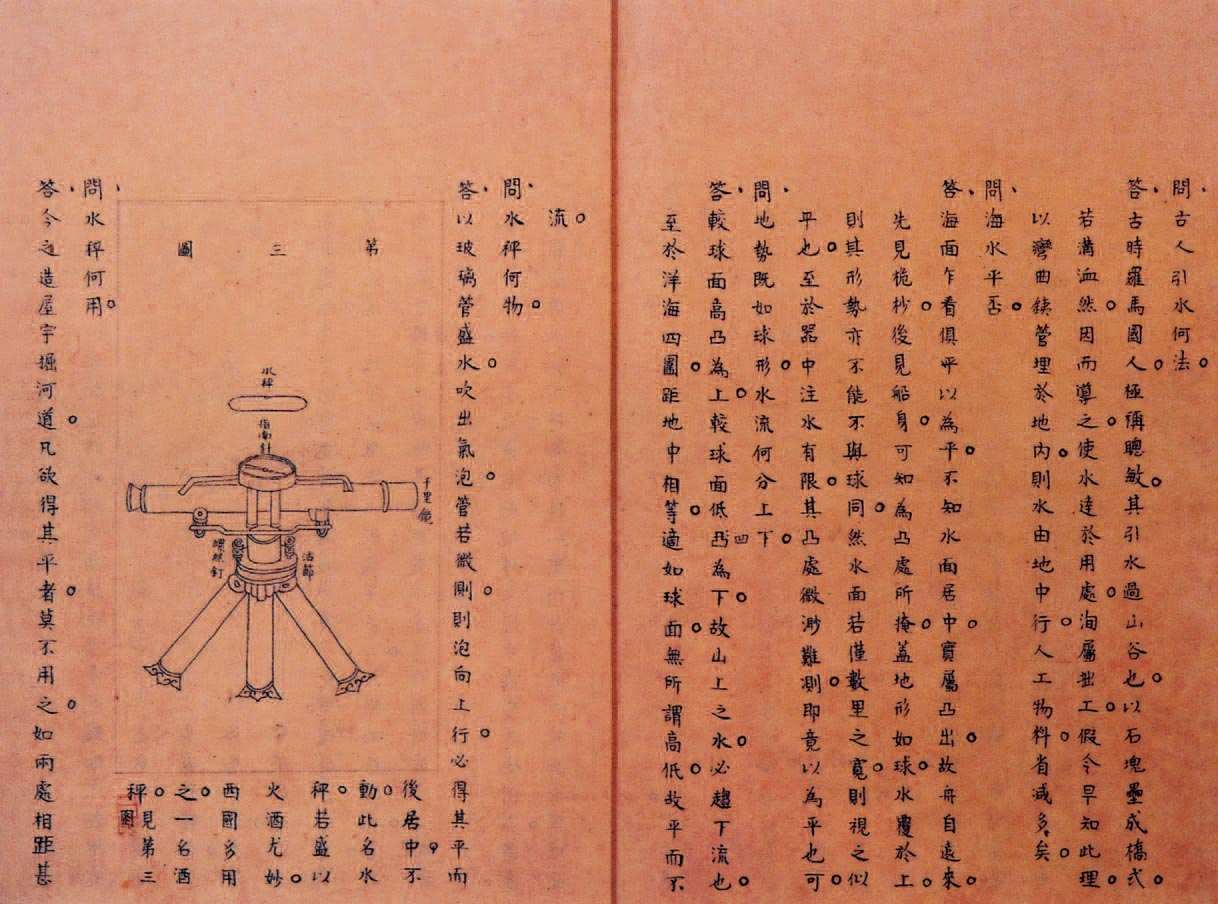 問古人引水何法
答古時羅馬國人極稱聰敏其引水過山谷也以石塊壘成橋式
若溝洫然因而導之使水達於用處洵屬拙工假令早知此理
以彎曲鉄管埋於地內則水由地中行人工物料省減多矣
問海水平否
答海面乍看俱平以為平不知水面居中實屬凸出故舟自遠來
先見桅杪後見船身可知為凸處所掩蓋地形如球水覆於上
則其形勢亦不能不與球同然水面若僅數里之寬則視之似
平也至於器中注水有限其凸處微渺難測即竟以為平也可
問地勢既如球形水流何分上下
答較球面高凸為上較球面低凹為下故山上之水必趨下流也
至於洋海四圍距地中相等適如球面無所謂高低故平而不
流
問水秤何物
答以玻璃管盛水吹出氣泡管若微側則泡向上行必得其平而
後居中不
動此名水
秤若盛以
火酒尤妙
西國多用
之一名酒
秤見第三
圖
第三圖
水秤
指南針
千里鏡
螺絲釘
活節
問水秤何用
答今之造屋宇掘河道凡欲得其平者莫不用之如兩處相距甚